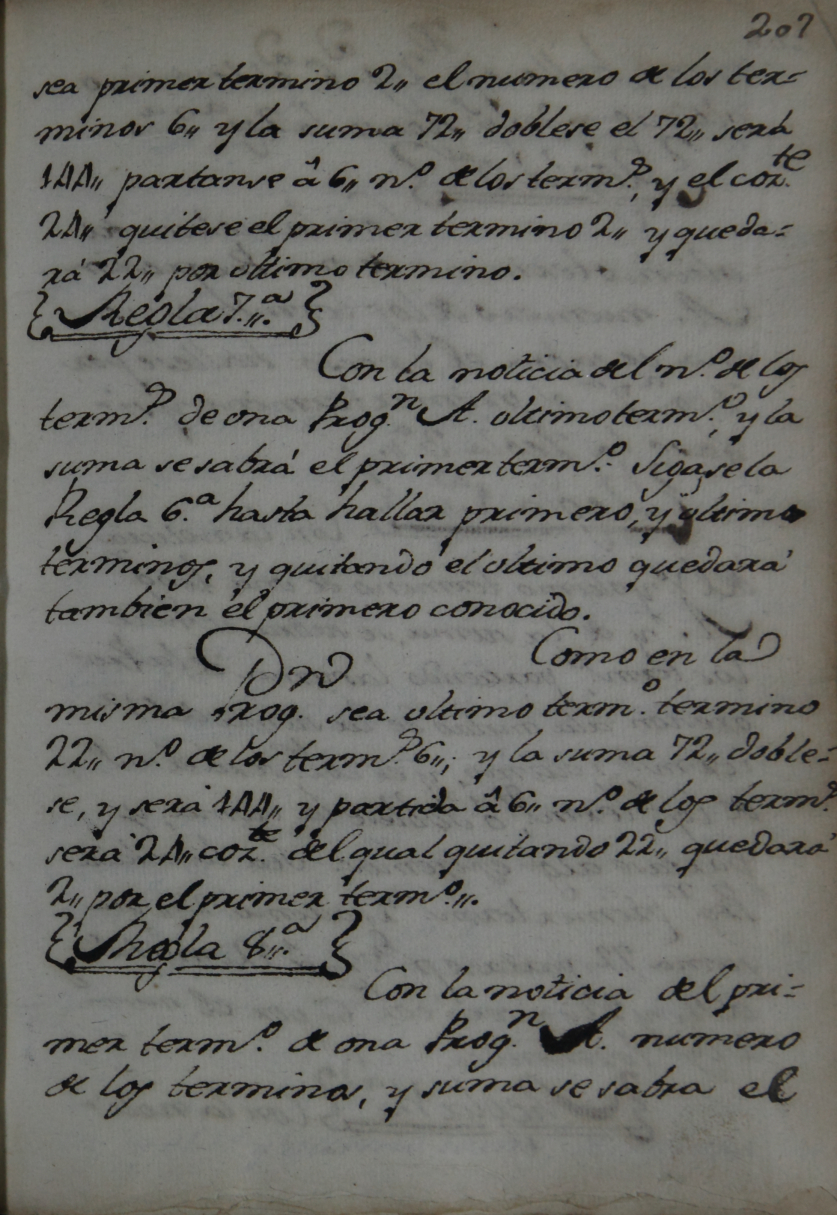 207
sea primer termino 2,, el numero de los ter=
minos 6,, y la suma 72,, doblese el 72,, será
144,, partanse â 6,, n.º de los term.s, y el coz.te
24,, quitese el primer termino 2,, y queda=
rá 22,, por ultimo termino.
{Regla 7,,.a}
Con la noticia del n.º de los
term.s de una Prog.n A. ultimo term.º, y la
suma se sabrá el primer term.º Sigase la
Regla 6.a hasta hallar primero, y ultimo
terminos, y quitando el ultimo quedará
tambien el primero conocido.
Como en la
misma Prog. sea ultimo term.º termino
22,, n.º de los term.s 6,,; y la suma 72,, doble=
se, y será 144,, y partida â 6,, n.º de los term.s
será 24,, coz.te del qual quitando 22,, quedará
2,, por el primer term.º,,.
{Regla 8,,.a}
Con la noticia del pri=
mer term.º de una Prog.n A. numero
de los terminos, y suma se sabra el